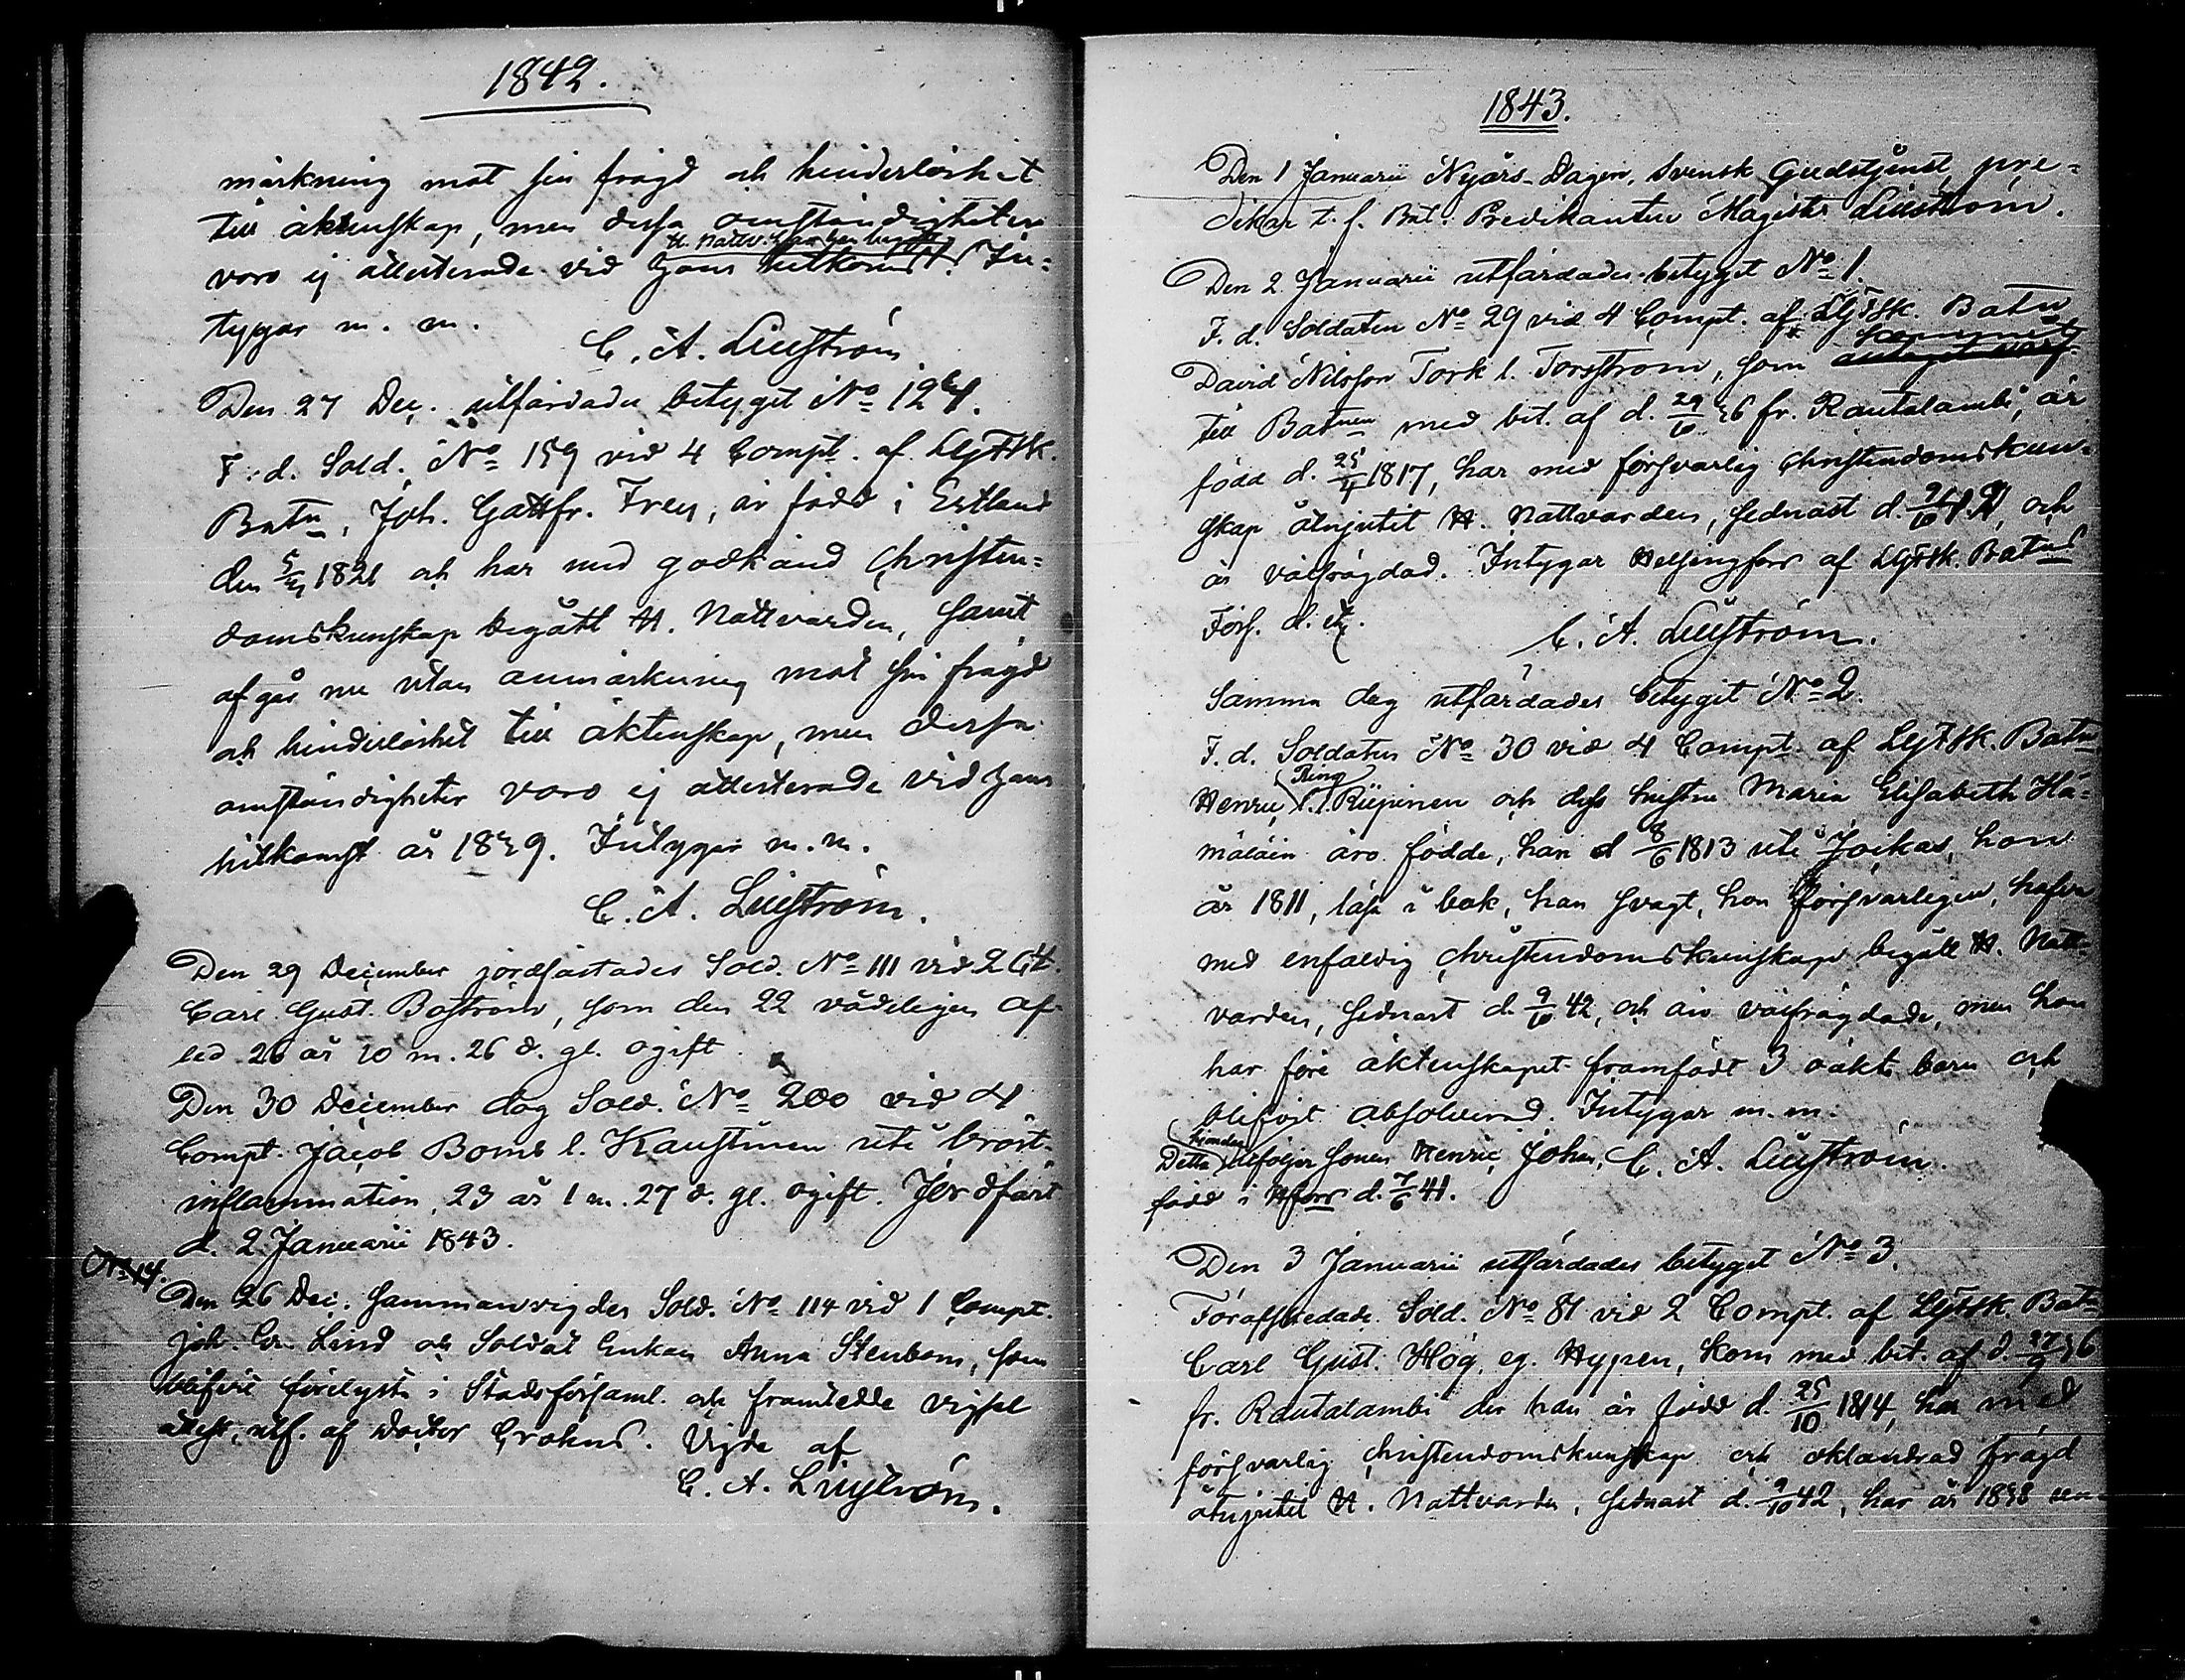 1842.
märkning mot sin frägd och hinderlöshet
till äktenskap, men dessa omständigheter
H. Nattv. han här begått
voro ej attesterade vid hans hitkomst. In-
tygar m. m.
C. A. Liliström
Den 27 Dec. utfärdades betyget No 124.
F. d. Sold. No 159 vid 4 Compt. af LgFSk.
Batn, Joh. Gottfr. Frey, är född i Estland
den 1821 och har med godkänd Christen-
domskunskap begått H. Nattvarden, samt
afgår nu utan anmärkning mot sin frägd
och hinderlöshet till äktenskap, men dessa
omständigheter voro ej attesterade vid hans
hitkomst år 1839. Intygar m. m.
C. A. Liliström.
Den 29 December jordfästades Sold. No 111 vid 2 C.
Carl Gust. Boström, som den 22 vådeligen af-
led 26 år 10 m. 26 d. gl. ogift.
Den 30 December dog Sold. No 200 vid 4
Compt. Jacob Bomb l. Kaustinen uti bröst-
inflammation, 23 år 1 m. 27 d. gl. ogift. Jordfäst
d. 2 Januarii 1843.
No 14.
Den 26 Dec. sammanvigdes Sold. No 114 vid 1 Compt.
Joh. Er. Lind och Soldat Enkan Anna Stenbom, som
blifvit förelysta i Stadsförsaml. och framtedde vigsel
attest, utf. af Doctor Crohns. Vigde af
C. A. Liliström.
1843.
Den 1 Januarii Nyårs-Dagen, Svensk Gudstjenst, pre-
dikar t. f. Bat. Predikanten Magister Liliström.
Den 2 Januarii utfärdades betyget No 1.
F. d. Soldaten No 29 vid 4 Compt. af LgFSk. Batn
kommit
David Nilsson Tork l. Torsström, som
till Batnen med bet. af d. 29/6 36 fr. Rautalambi, är
född d. 25/4 1817, har med försvarlig Christendomskun-
skap åtnjutit H. Nattvarden, sednast d. 9/10 42, och
är välfrägdad. Intygar Helsingfors af LgFSk. Batns
Förs. d. etc.
C. A. Liliström.
Samma dag utfärdades betyget No 2.
F. d. Soldaten No 30 vid 4 Compt. af LgFSk. Batn
Ring
Henric l. Riipinen och dess hustru Maria Elisabeth Hä-
mäläin äro födde, han d 8/6 1813 uti Joikas, hon
år 1811, läsa i bok, han svagt, hon försvarligen, hafva
med enfaldig Christendomskunskap begått H. Natt-
varden, sednast d. 9/10 42, och äro välfrägdade, men hon
har före äktenskapet framfödt 3 oäkta barn och
blifvit absolverad. Intygar m. m.
Detta åtföljer sonen Henric Johan, C. A. Liliström.
född i Hfors d. 7/6 41.
Den 3 Januarii utfärdades betyget No 3.
Förafskedade Sold. No 81 vid 2 Compt. af LgFSk. Batn
Carl Gust. Hög, eg. Hyppen, kom med bet. af d. 27/9 36
fr. Rautalambi der han är född d. 25/10 1814, har med
försvarlig Christendomskunskap och oklandrad frägd
åtnjutit H. Nattvarden, sednast d. 9/10 42, har år 1838 un-